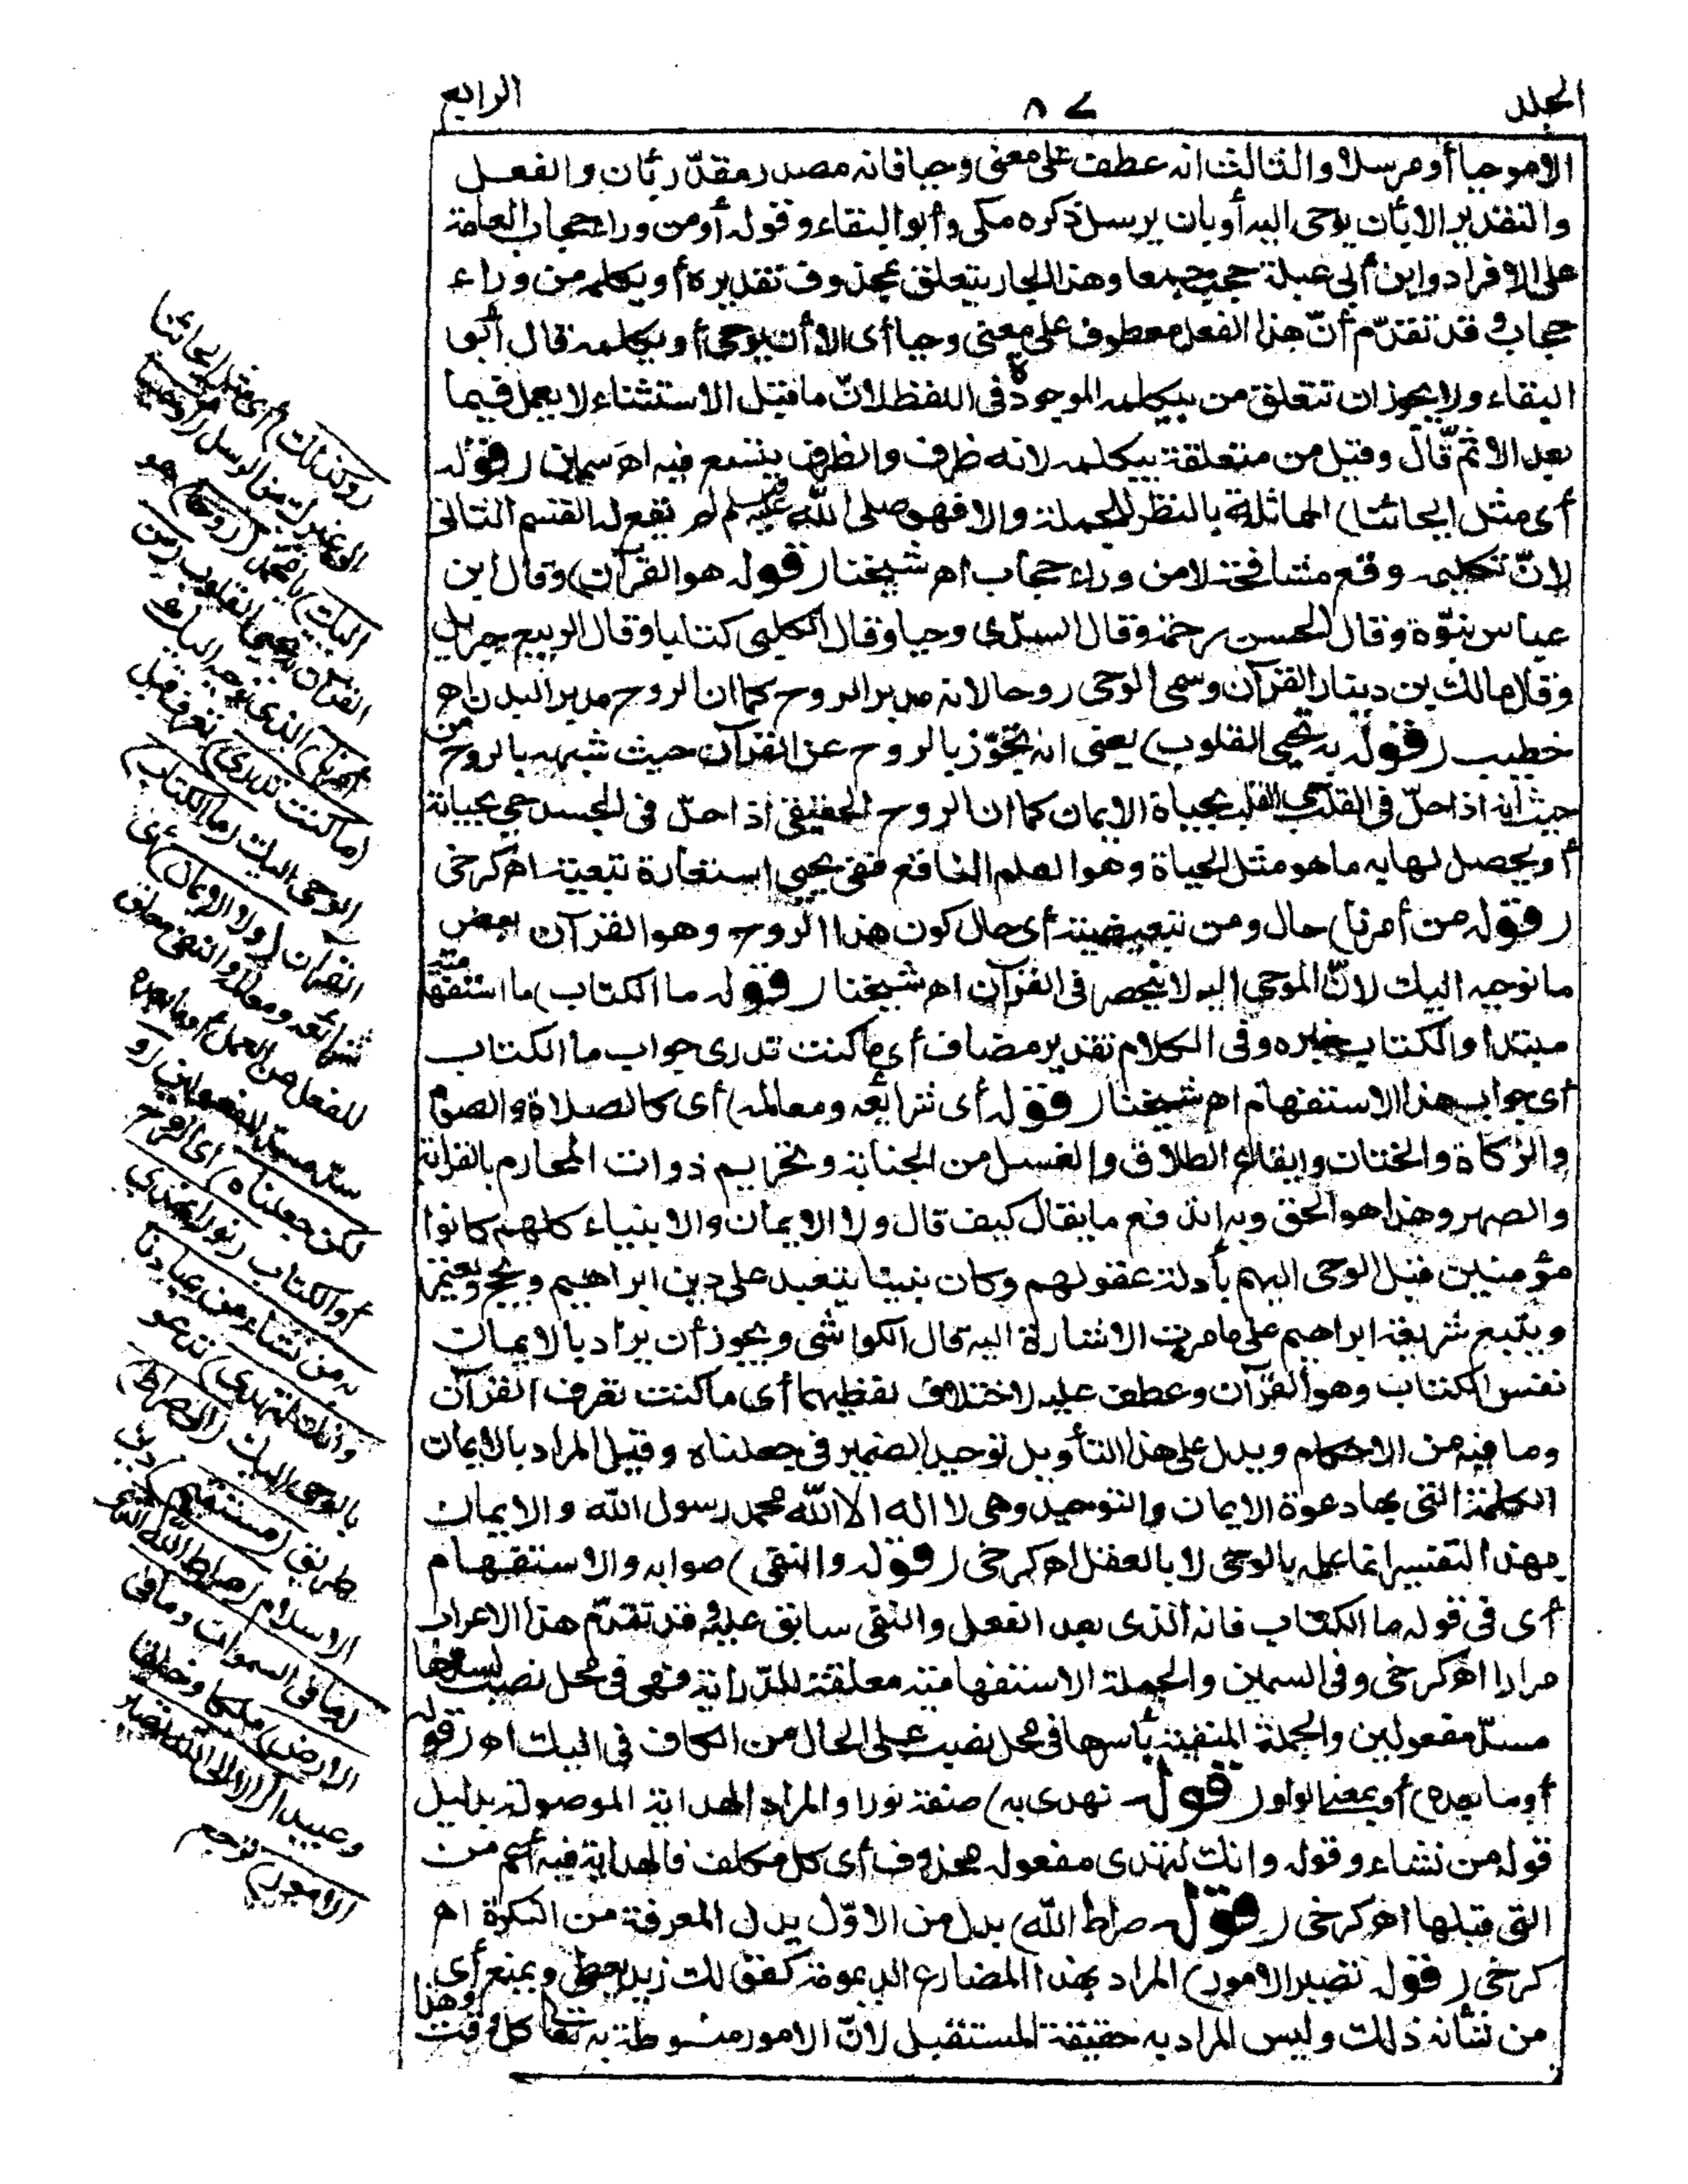 الجلد
٨٧
الرابع
الاموحيا أو مرسلا والثالث انه عطف على معنى وحيا فانه مصدر مقدّر بأن والفعل
والتقدير الا بأن يوحى اليه أو بان يرسل ذكره مكى وأبو البقاء وقوله أو من وراء حجاب العامة
على الافراد وابن أبى عبلة حجب جمعا وهذا الجار يتعلق بمحذوف تقديره أو يكلمه من وراء
حجاب وقد تقدّم أنّ هذا الفعل معطوف على معنى وحيا أى الا أن يوحى أو يكلمه قال أبو
البقاء ولا يجوز ان تتعلق من بيكلمه الموجودة فى اللفظ لانّ ما قبل الاستثناء لا يعمل فيما
بعد الا ثمّ قال وقيل من متعلقة بيكلمه لانه ظرف والظرف يتسع فيه اھ سمين (قوله
أى مثل ايحائنا) المماثلة بالنظر للجملة والا فهو صلى الله عليه وسلم لم تقع له القسم الثانى
لانّ تكليمه وقع مشافهة لا من وراء حجاب اھ شيخنا (قوله هو القرآن) وقال ابن
عباس نبوّة وقال الحسن رحمة وقال السدّى وحيا وقال الكلبى كتابا وقال الربيع جبريل
وقال مالك بن دينار القرآن وسمى الوحى روحا لانه مدبر الروح كما ان الروح مدبر البدن اھ
خطيب (قوله به تحيى القلوب) يعنى انه تجوّز بالروح عن القرآن حيث شبهه بالروح من
حيث انه اذا حلّ فى القلب حيى القلب بحياة الايمان كما ان الروح الحقيقى اذا حلّ فى الجسد حيى بحياته
أو يحصل لها به ما هو مثل الحياة وهو العلم النافع ففى يحيى استعارة تبعية اھ كرخى
(قوله من أمرنا) حال ومن تبعيضية أى حال كون هذا الروح وهو القرآن بعض
ما نوحيه اليك لانّ الموحى اليه لا ينحصر فى القرآن اھ شيخنا (قوله ما الكتاب) ما استفهامية
مبتدأ والكتاب خبره وفى الكلام تقدير مضاف أى ما كنت تدرى جواب ما الكتاب
أى جواب هذا الاستفهام اھ شيخنا (قوله أى شرائعه ومعالمه) أى كالصلاة والصوم
والزكاة والختان وايقاع الطلاق والغسل من الجنابة وتحريم ذوات المحارم بالقرابة
والصهر وهذا هو الحق وبه اندفع ما يقال كيف قال ولا الايمان والانبياء كلهم كانوا
مؤمنين قبل الوحى اليهم بأدلة عقولهم وكان نبينا يتعبد على دين ابراهيم ويحج ويعتمر
ويتبع شريعة ابراهيم على ما مرت الاشارة اليه قال الكواشى ويجوز أن يراد بالايمان
نفس الكتاب وهو القرآن وعطف عليه لاختلاف لفظيهما أى ما كنت تعرف القرآن
وما فيه من الاحكام ويدل على هذا التأويل توحيد الضمير فى جعلناه وقيل المراد بالايمان
الكلمة التى بها دعوة الايمان والتوحيد وهى لا اله الا الله محمد رسول الله والايمان
بهذا التفسير انما علمه بالوحى لا بالعقل اھ كرخى (قوله والنفى) صوابه والاستفهام
أى فى قوله ما الكتاب فانه الذى بعد الفعل والنفى سابق عليه وقد تقدّم هذا الاعراب
مرارا اھ كرخى وفى السمين والجملة الاستفهامية معلقة للدّراية فهى فى محل نصب لسدّها
مسدّ مفعولين والجملة المنفية بأسرها فى محل نصب على الحال من الكاف فى اليك اھ (قوله
أو ما بعده) أو بمعنى الواو (قوله نهدى به) صفة نورا والمراد الهداية الموصولة بدليل
قوله من نشاء وقوله وانك لتهدى مفعوله محذوف أى كل مكلف فالهداية فيه أعم من
التى قبلها اھ كرخى (قوله صراط الله) بدل من الاوّل بدل المعرفة من النكرة اھ
كرخى (قوله تصير الامور) المراد بهذا المضارع الديمومة كقولك زيد يعطى ويمنع أى
من شأنه ذلك وليس المراد به حقيقة المستقبل لانّ الامور منسوطة به تعالى كل وقت وهذا
(وكذلك) أى مثل ايحائنا
الى غيرك من الرسل (أوحينا
اليك) يا محمد (روحا) هو
القرآن به تحيى القلوب (من
أمرنا) الذى نوحيه اليك
(ما كنت تدرى) تعرف قبل
الوحى اليك (ما الكتاب)
القرآن (ولا الايمان) أى
شرائعه ومعالمه والنفى معلق
للفعل عن العمل أو ما بعده
سدّ مسدّ المفعولين (و
لكن جعلناه) أى الروح
أو الكتاب (نورا نهدى
به من نشاء من عبادنا
وانك لتهدى) تدعو
بالوحى اليك (الى صراط)
طريق (مستقيم) دين
الاسلام (صراط الله الذى
له ما فى السموات وما فى
الارض) ملكا وخلقا
وعبيدا (ألا الى الله تصير
الامور) ترجع